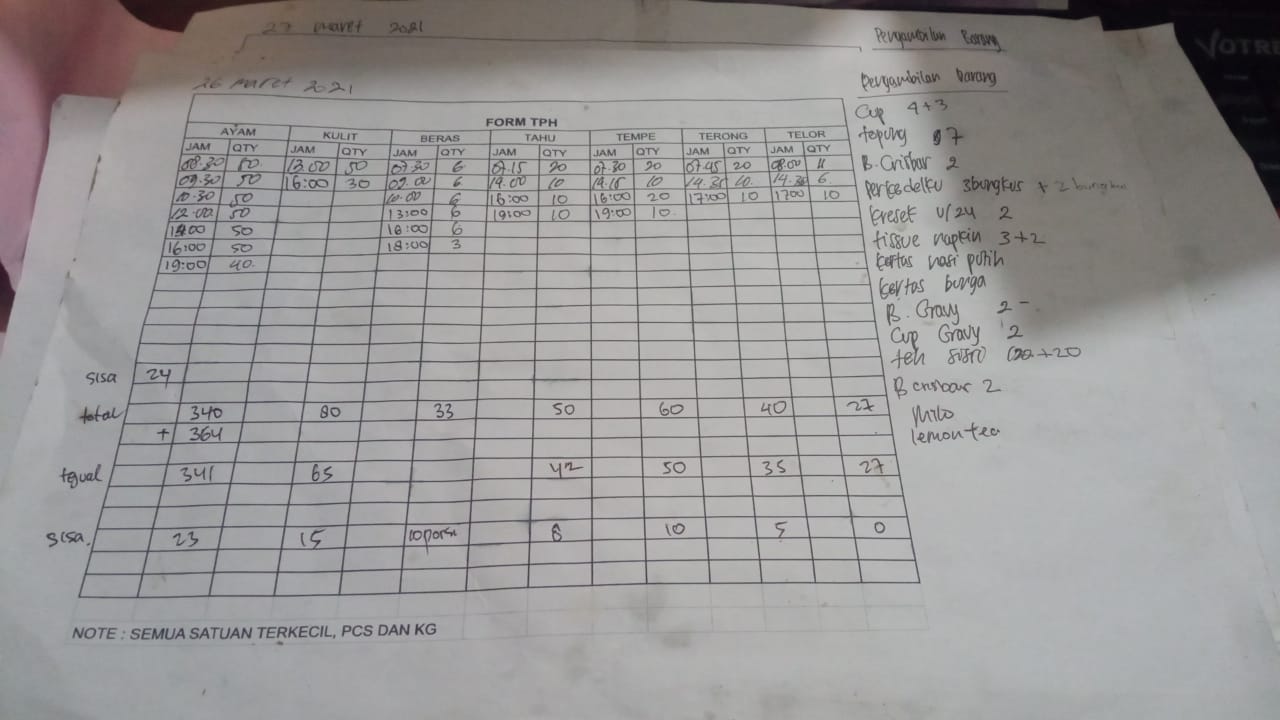 27 maret 2021
Pengambilan Barang
26 maret 2021
Pengambilan barang
FORM TPH
AYAM KULIT BERAS TAHU TEMPE TERONG TELOR
JAM QTY JAM QTY JAM QTY JAM QTY JAM QTY JAM QTY JAM QTY
08.30 50 13.00 50 07.30 6 07.15 20 07.30 20 07.45 20 08.00 11
09.30 50 16:00 30 09.00 6 14.00 10 14.15 10 14.30 10 14.30 6
10.30 50 10.00 6 16:00 10 16:00 20 17:00 10 1700 10
12.00 50 13:00 6 19:00 10 19:00 10
1400 50 16:00 6
16:00 50 18:00 3
19:00 40
sisa 24
total 340 80 33 50 60 40 27
+ 364
341 65 42 50 35 27
sisa 23 15 10porsi 8 10 5 0
NOTE : SEMUA SATUAN TERKECIL, PCS DAN KG
Cup 4+3
tepung 7
B. Crisbar 2
pericedelku 3bungkus + 2 bungkus
kreset u/24 2
tissue napkin 3+2
kertas nasi putih
kertas bunga
B. Gravy 2
Cup Gravy 2
teh sosro +20
B crisbar 2
Milo
lemon tea
VOTRE